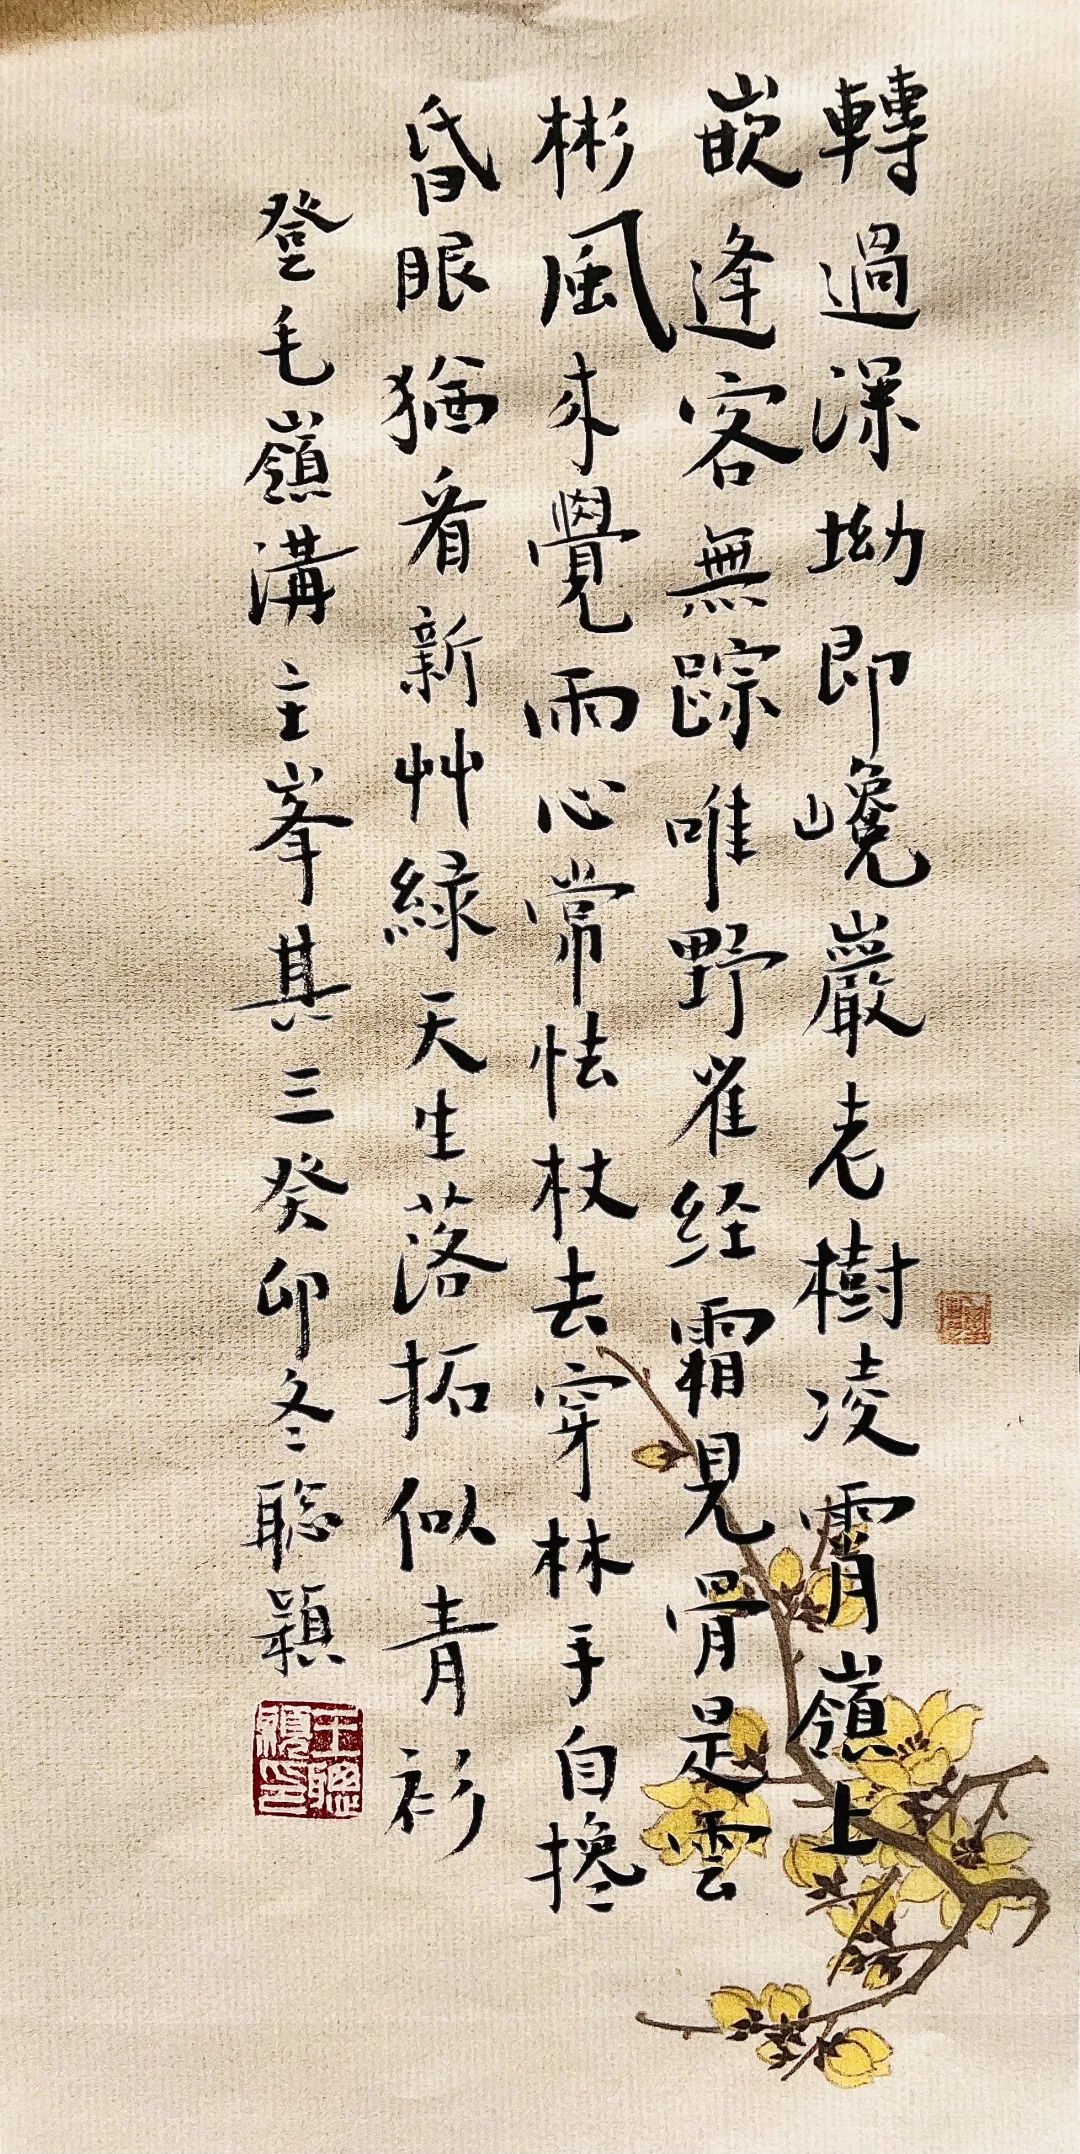 轉過深坳即巉巖老樹凌霄嶺上
嵌逢客無踪唯野雀经霜見骨是雲
彬風来覺雨心常怯杖去穿林手自搀
昏眼猶看新艸緑天生落拓似青衫
登毛嶺溝主峯其三癸卯冬聪穎
王聰穎印